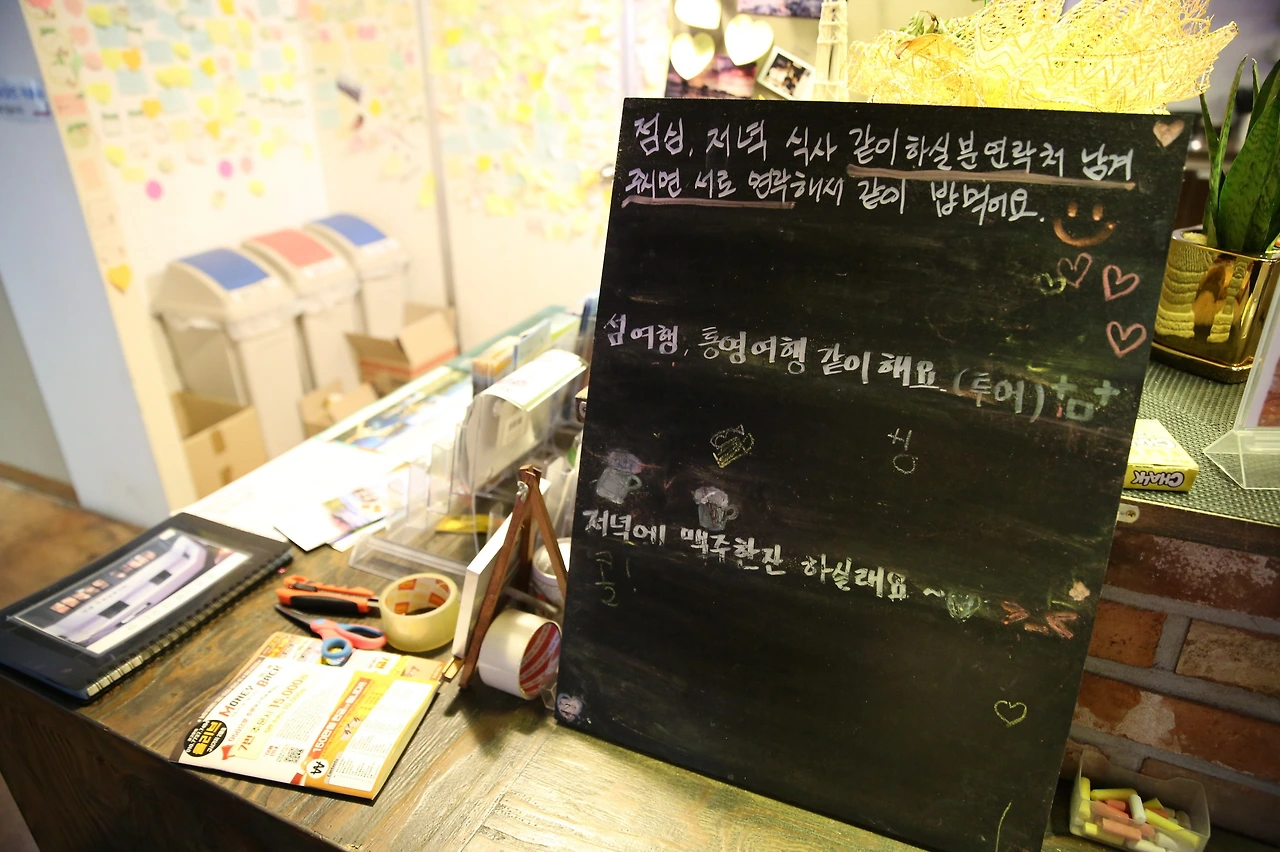 점심, 저녁 식사 같이하실분 연락처 남겨
주시면 서로 연락해서 같이 밥먹어요.
섬여행, 통영여행 같이해요 (투어)
저녁에 맥주한잔 하실래요~
콜!
CHALK
MONEY BACK
15,000